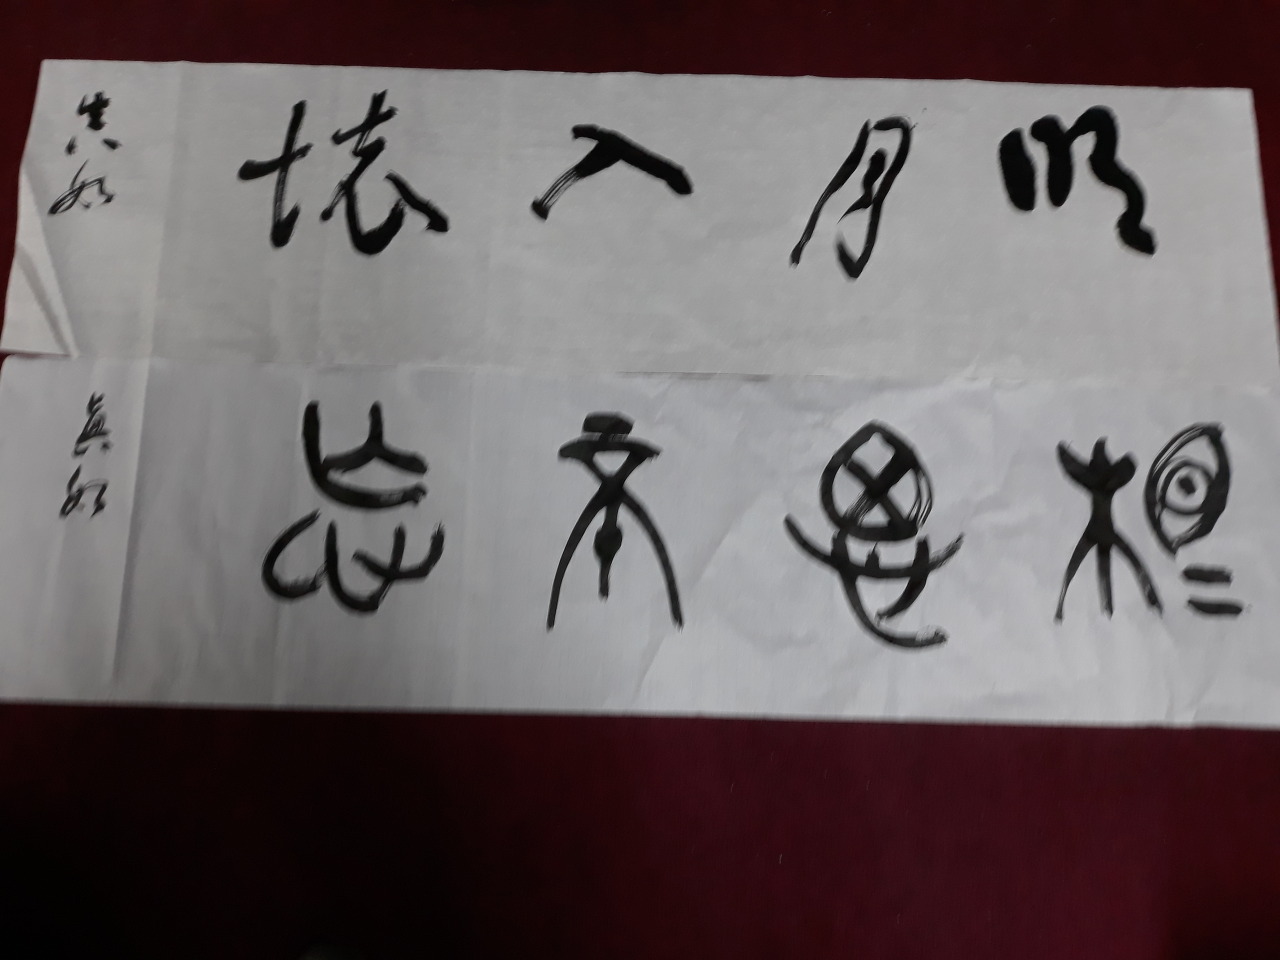 明月入懷
真如
相思不忘
真如